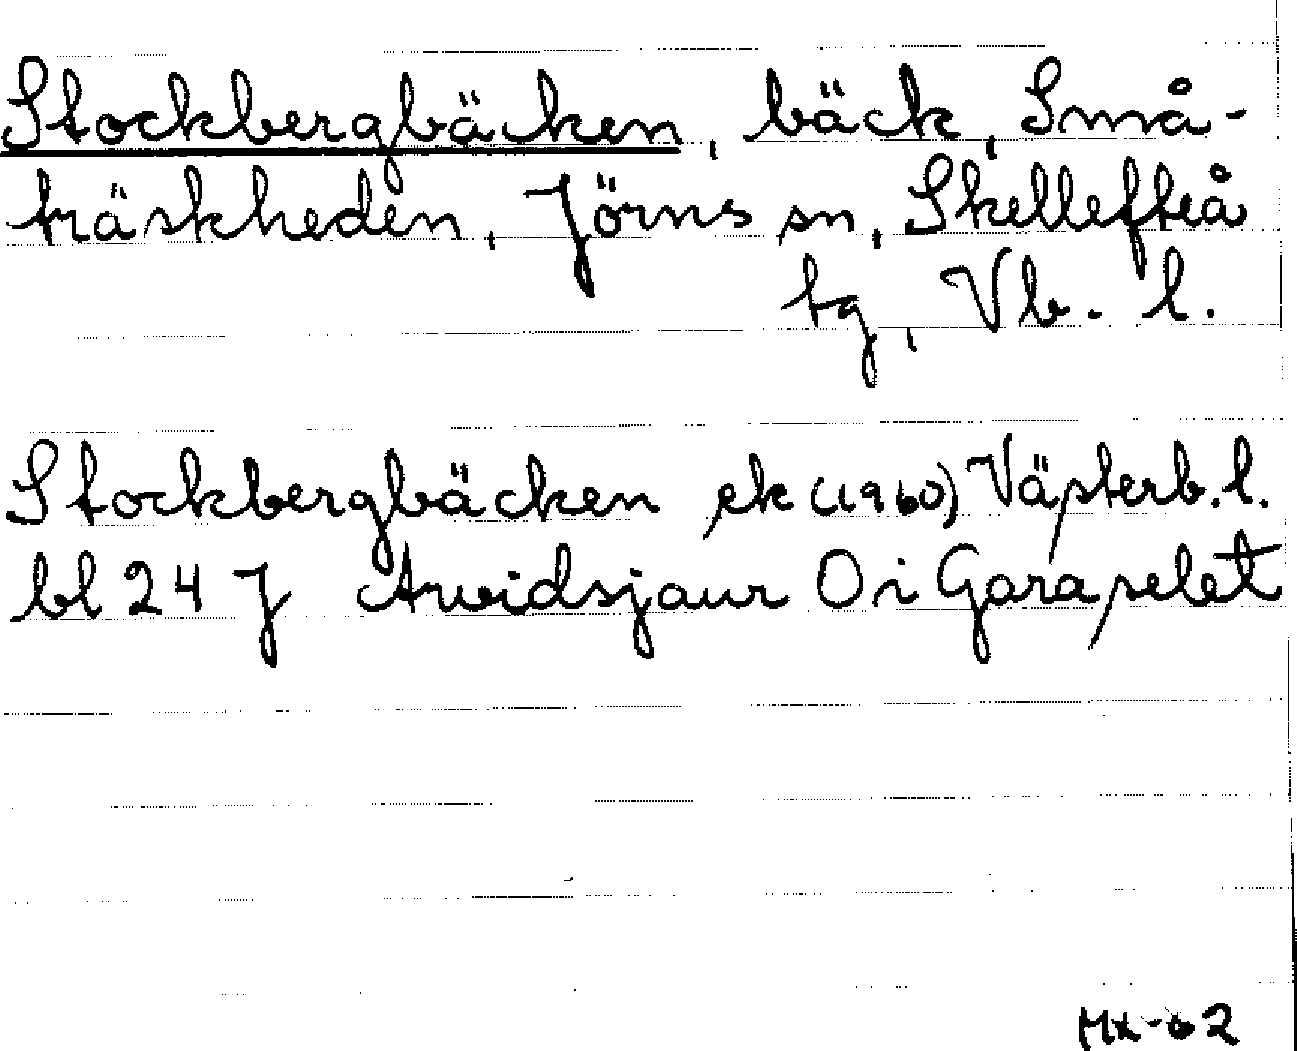 Stockbergbäcken, bäck, Små-
träskheden, Jörns sn, Skellefteå
tg, Vb. l.
Stockbergbäcken ek (1960) Västerb. l.
bl 24 J Arvidsjaur O i Garaselet